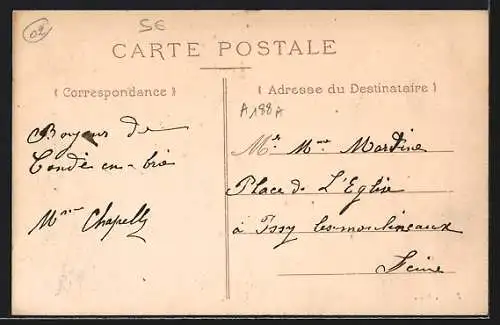 02
5E
CARTE POSTALE
( Correspondance )
( Adresse du Destinataire )
A188A
Boyeux de
Condé en-brie
Mme Chapelly
Mr. Mme Mardine
Place de L'Eglise
à Issy les-moulineaux
Seine